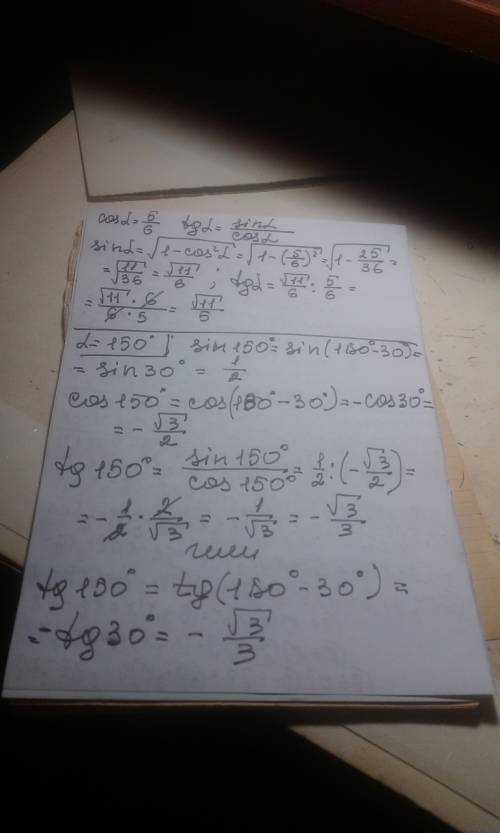 cosα = 5/6   tgα = sinα/cosα
sinα = √(1-cos²α) = √(1-(5/6)²) = √(1 - 25/36) =
= √(11/36) = √11/6 ; tgα = √11/6 : 5/6 =
= √11 · 6/6 · 5 = √11/5
α = 150° ; sin150° = sin(180°-30°) =
= sin30° = 1/2
cos150° = cos(180°-30°) = -cos30° =
= - √3/2
tg150° = sin150°/cos150° = 1/2 : (- √3/2) =
= - 1/2 · 2/√3 = - 1/√3 = - √3/3
или
tg150° = tg(180°-30°) =
= -tg30° = - √3/3